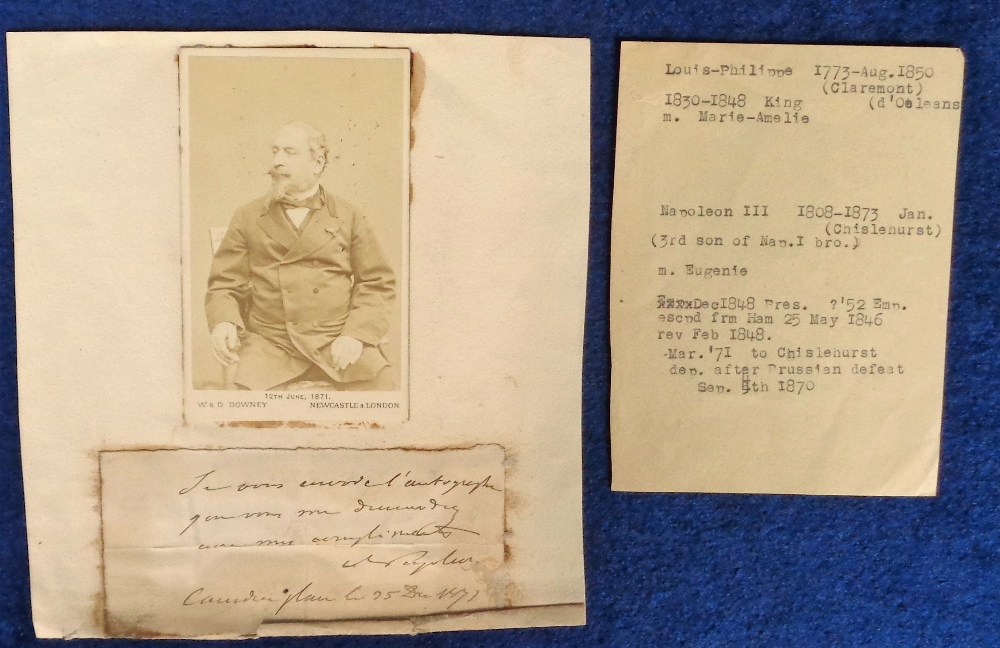 12TH JUNE, 1871.
W. & D. DOWNEY NEWCASTLE & LONDON
Je vous envoie l'autographe
que vous me demandez
avec mes compliments
Napoleon
Camden place le 25 Dec
Louis-Philippe 1773-Aug.1850
(Claremont)
1830-1848 King (d'Oeleans
m. Marie-Amelie
Napoleon III 1808-1873 Jan.
(Chislehurst)
(3rd son of Nap.I bro.)
m. Eugenie
Dec1848 Pres. ?'52 Emp.
escpd frm Ham 25 May 1846
rev Feb 1848.
Mar.'71 to Chislehurst
dep. after Prussian defeat
Sep. 4th 1870